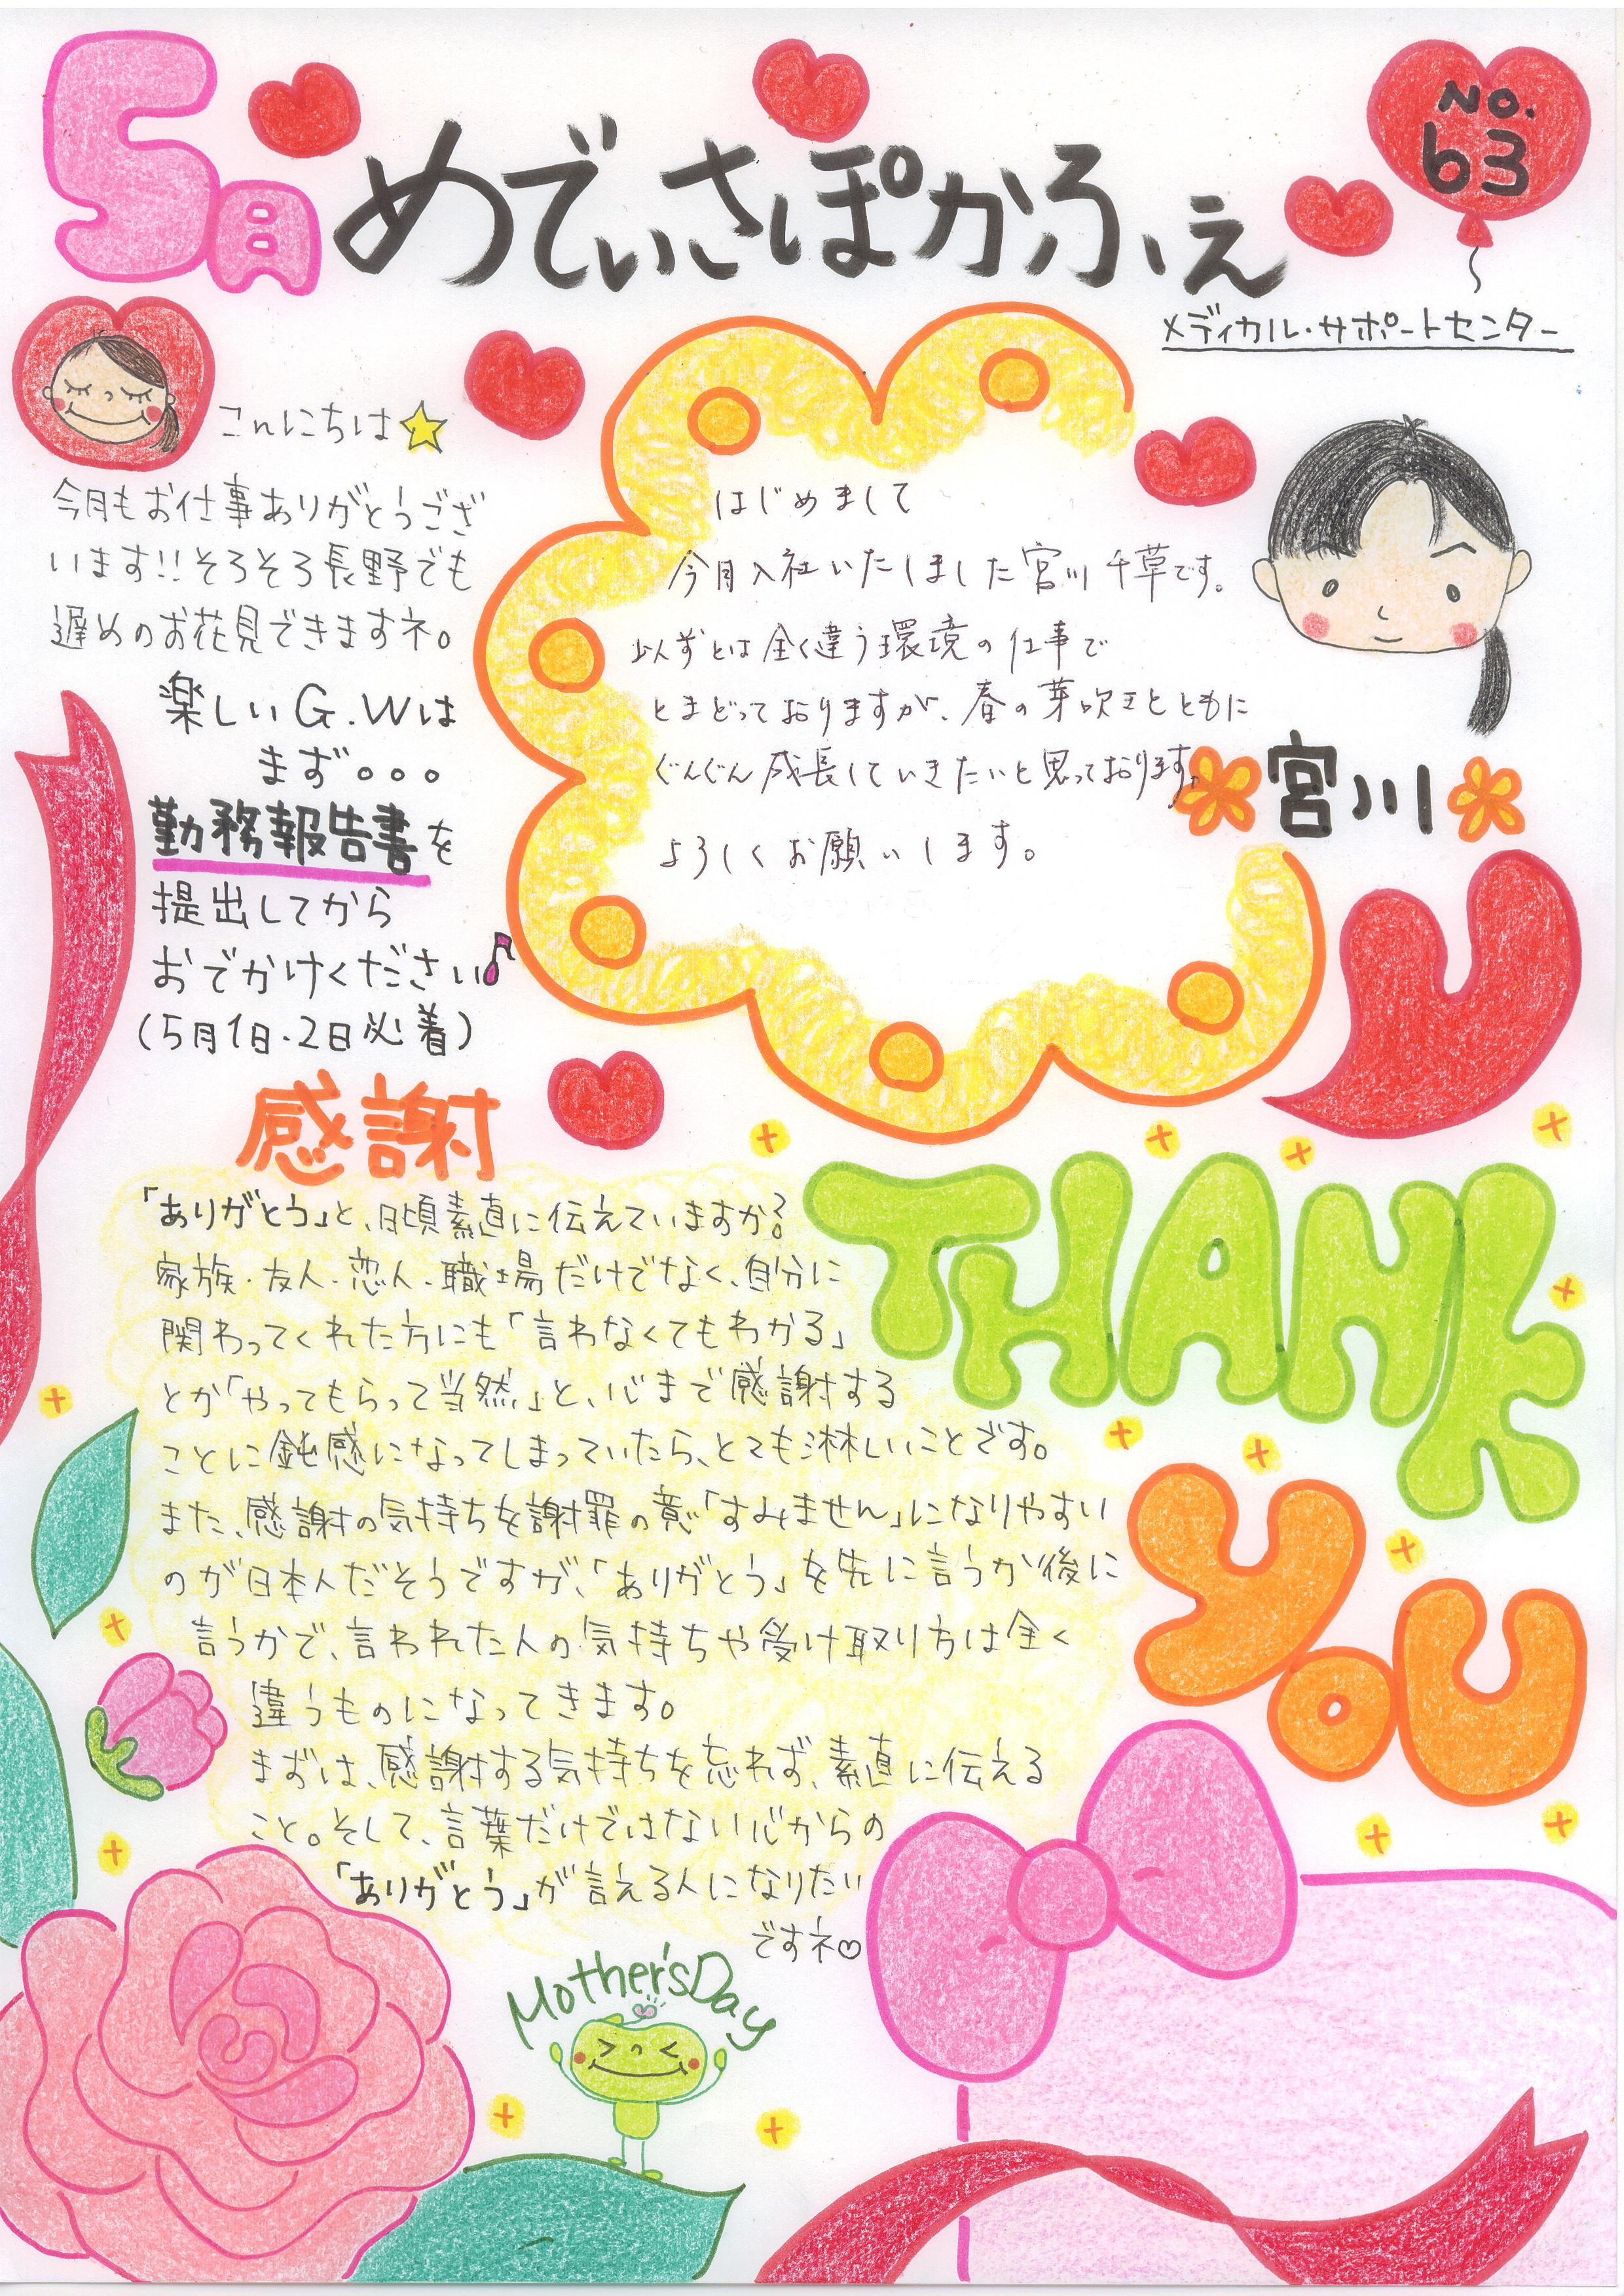 5月
めでぃさぽかふぇ
No.
63
メディカル・サポートセンター
こんにちは
今月もお仕事ありがとうござ
います!!そろそろ長野でも
遅めのお花見できますネ。
楽しいG.Wは
まず。。。
勤務報告書を
提出してから
おでかけください♪
(5月1日・2日必着)
はじめまして
今月入社いたしました宮川千草です。
以前とは全く違う環境の仕事で
とまどっておりますが、春の芽吹きとともに
ぐんぐん成長していきたいと思っております。
よろしくお願いします。
宮川
感謝
「ありがとう」と、日頃素直に伝えていますか?
家族・友人・恋人・職場だけでなく、自分に
関わってくれた方にも「言わなくてもわかる」
とか「やってもらって当然」と、心まで感謝する
ことに鈍感になってしまっていたら、とても淋しいことです。
また、感謝の気持ちを謝罪の意「すみません」になりやすい
のが日本人だそうですが、「ありがとう」を先に言うか後に
言うかで、言われた人の気持ちや受け取り方は全く
違うものになってきます。
まずは、感謝する気持ちを忘れず、素直に伝える
こと。そして、言葉だけではない心からの
「ありがとう」が言える人になりたい
ですネ♡
THANK
YOU
Mother'sDay